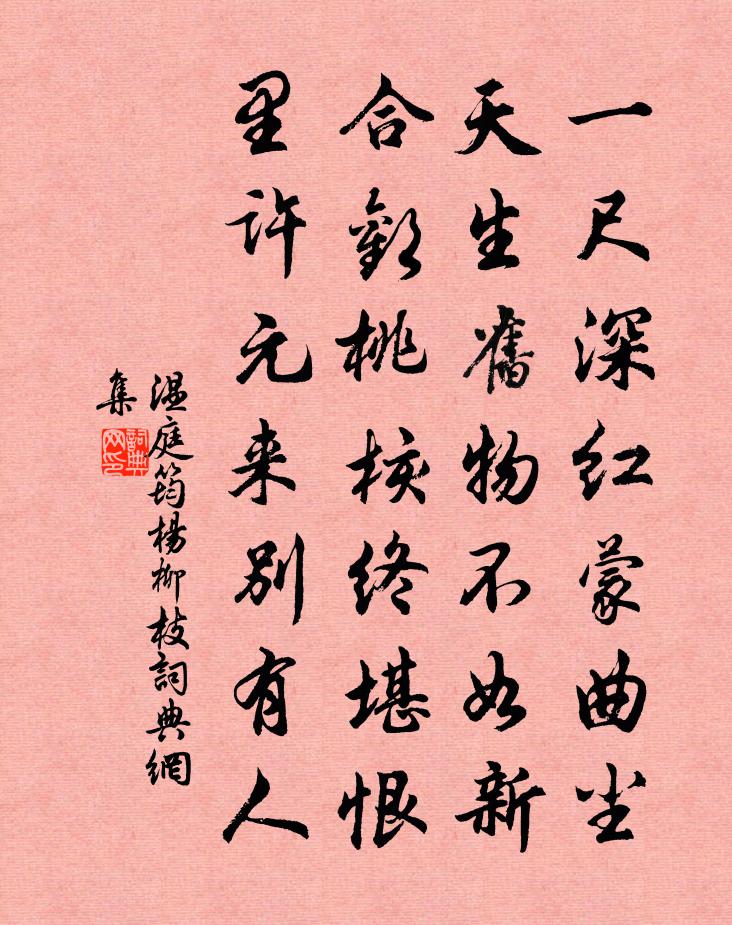 一尺深红蒙曲尘
天生舊物不如新
合歡桃核终堪恨
里许元来别有人
温庭筠楊柳枝詞典網
集
詞典
网印